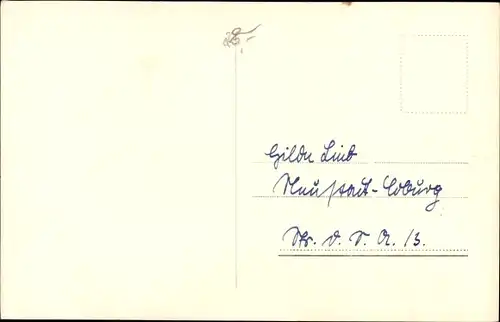 Hilde Lind
Neustadt-Coburg
Str. d. S. A. 13.